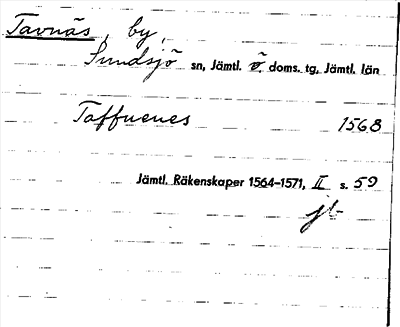 Tavnäs, by,
Sundsjö sn, Jämtl. ö. doms. tg, Jämtl. län
Taffuenes 1568
Jämtl. Räkenskaper 1564–1571, II s. 59